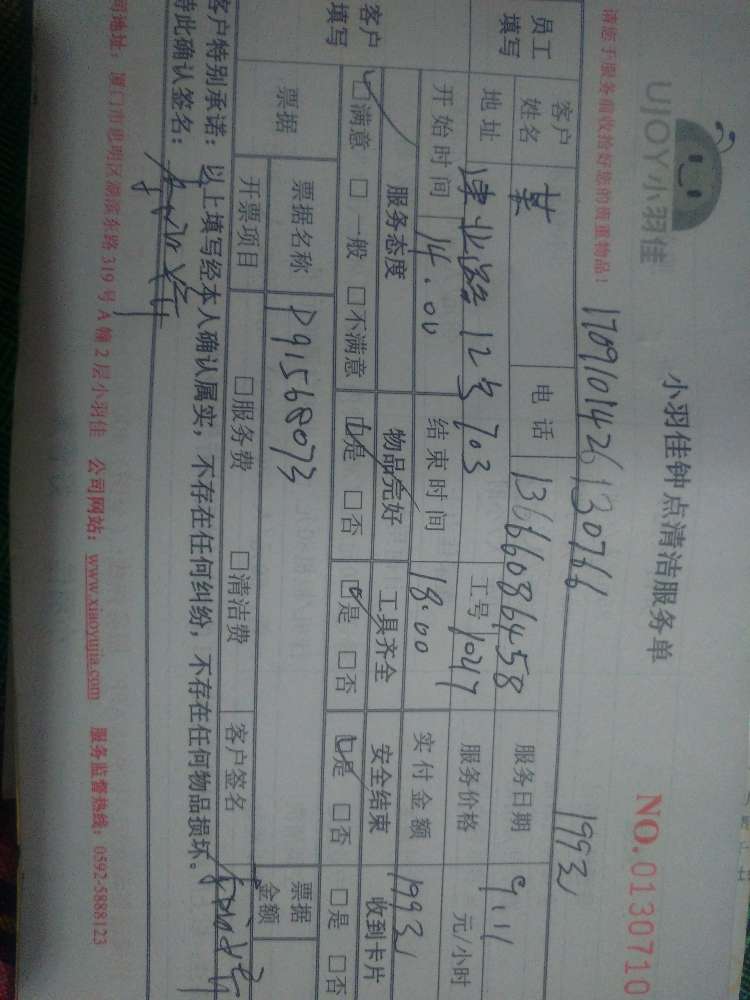 UJOY小羽佳
小羽佳钟点清洁服务单
NO.0130710
请您于服务前收拾好您的贵重物品！
1709101426130766
1993
员工填写
客户姓名
某
电话
13666086458
服务日期
9.11
地址
12号703
工号
1047
服务价格
元/小时
开始时间
14.00
结束时间
18.00
实付金额
1993
客户填写
服务态度
物品完好
工具齐全
安全结束
收到卡片
满意 □ 一般 □不满意
是 □否
是 □否
是 □否
□是 □否
票据
票据名称
P91568073
票据金额
开票项目
□服务费 □清洁费
客户签名
客户特别承诺：以上填写经本人确认属实，不存在任何纠纷，不存在任何物品损坏。
特此确认签名：
司地址：厦门市思明区湖滨东路319号A幢2层小羽佳 公司网站：www.xiaoyujia.com 服务监督热线：0592-5888123